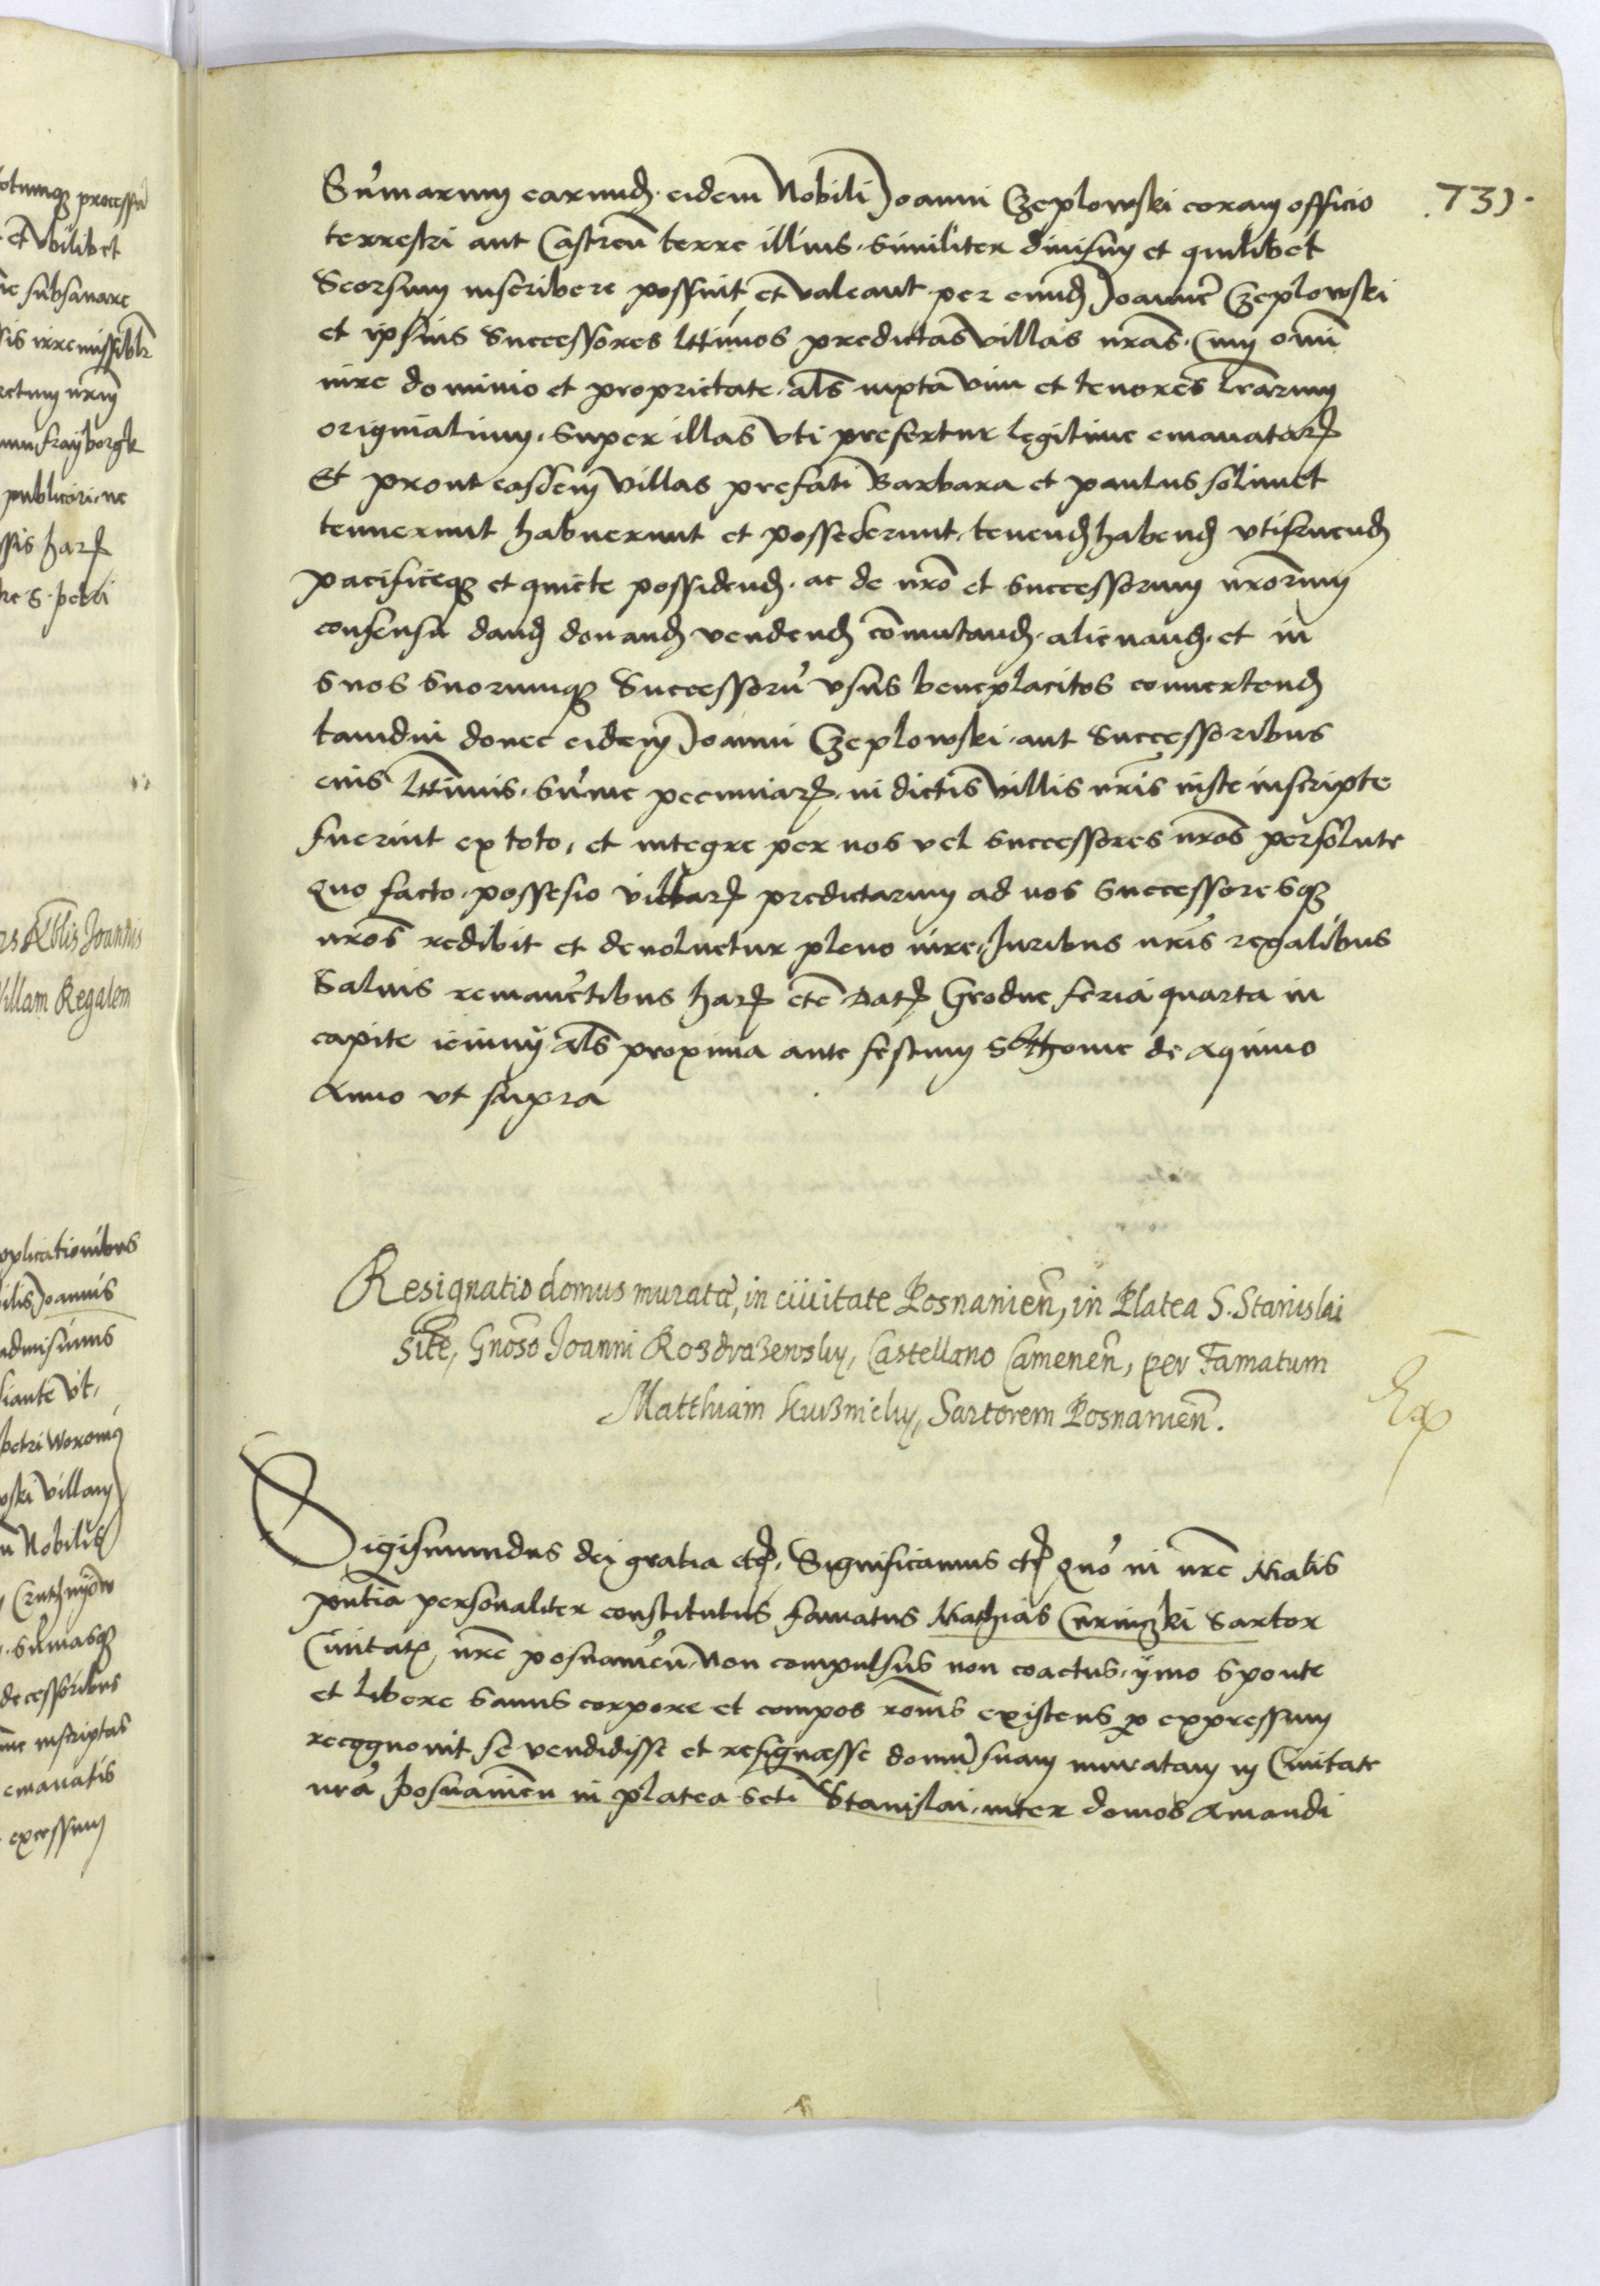 731.
Sūmarum earundꝫ eidem Nobili Joanni Czeplowski coram officio
terrestri aut Castreñ terre illius similiter divisim et quilibet
Seorsum inscribere possint et valeant per eundꝫ Joannē Czeplowski
et ipsius Successores lttimos predictas villas nr̄as Cum omni
iure dominio et proprietate als iuxta vim et tenores lrarum
originalium super illas vti prefertur legitime emanatarꝝ
Et prout easdem villas prefati Barbara et paulus solimet
tenuerunt habuerunt et possederunt tenendꝫ habendꝫ vtifruendꝫ
pacificeqꝫ et quiete possidendꝫ ac de nro et successorum nrorum
consensu dandꝫ donandꝫ vendendꝫ cōmutandꝫ alienandꝫ et in
suos suorumqꝫ Successorū vsus beneplacitos convertendꝫ
tamdiu donec eidem Joanni Czeplowski aut Successoribus
eius lttimis sūme pecuniarꝝ in dictis villis nris iuste inscripte
fuerint ex toto, et integre per nos vel successores nros persolute
Quo facto possesio villarꝝ predictarum ad nos successoresqꝫ
nros redibit et devoluetur pleno iure Juribus nris regalibus
Salvis remanētibus harꝝ etc Datꝝ Grodne feria quarta in
capite ieiunij als proxima ante festum S Thome de Aquino
Anno vt supra
Resignatio domus muratæ, in civitate Posnanieñ, in Platea S. Stanislai
sitæ, Gnoso Joanni Rozdrazewsky, Castellano Cameneñ, per Famatum
Matthiam Kurznicky, Sartorem Posnanieñ.
Ex
Sigismundus dei gratia etcꝫ Significamus etcꝫ Quō in nre Mtatis
pñtia personaliter constitutus famatus Mathias Curniczki Sartor
Civitatꝫ nre posnanieñ Non compulsus non coactus ymo sponte
et libere sanus corpore et compos ronis existens ꝑ expressum
recognovit se vendidisse et resignasse domū suam muratam in Civitate
nra posnanieñ in platea scti Stanislai inter domos Amandi